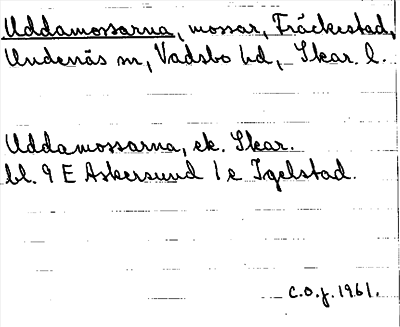 Uddamossarna, mossar, Fräckestad,
Undenäs sn, Vadsbo hd, Skar. l.
Uddamossarna, ek. Skar.
bl. 9 E Askersund 1 e Igelstad.
C.O.J. 1961.